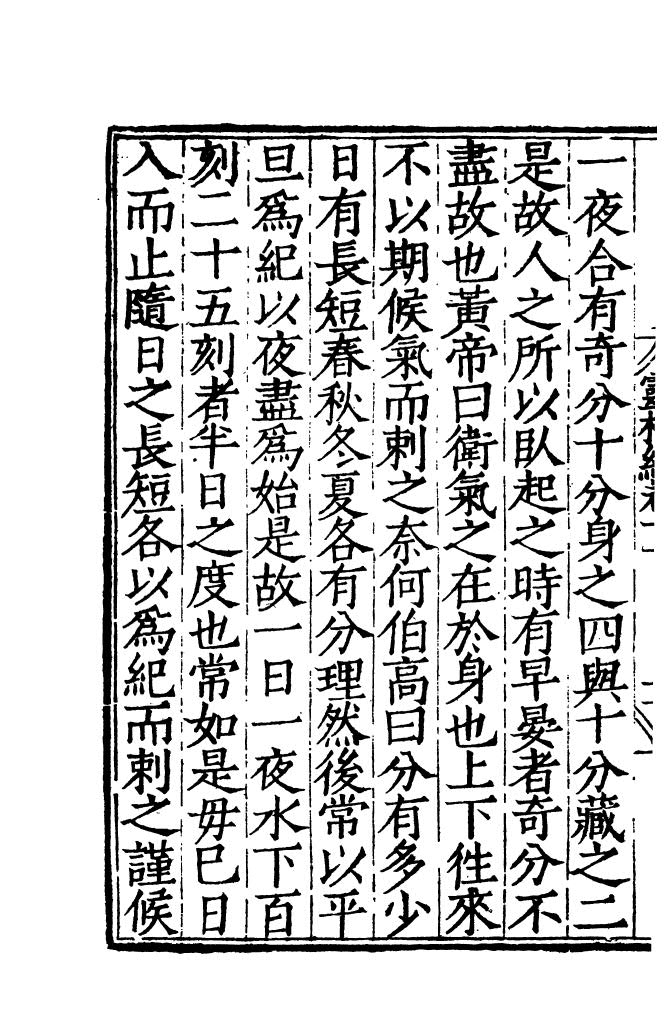 一夜合有奇分十分身之四與十分藏之二
是故人之所以臥起之時有早晏者奇分不
盡故也黃帝曰衛氣之在於身也上下徃來
不以期候氣而刺之奈何伯高曰分有多少
日有長短春秋冬夏各有分理然後常以平
旦爲紀以夜盡爲始是故一日一夜水下百
刻二十五刻者半日之度也常如是毋已日
入而止隨日之長短各以爲紀而刺之謹候